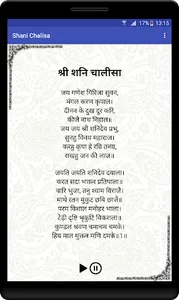 13:15
Shani Chalisa
श्री शनि चालीसा
जय गणेश गिरिजा सुवन,
मंगल करण कृपाल।
दीनन के दुख दूर करि,
कीजै नाथ निहाल॥
जय जय श्री शनिदेव प्रभु,
सुनहु विनय महाराज।
करहु कृपा हे रवि तनय,
राखहु जन की लाज॥
जयति जयति शनिदेव दयाला।
करत सदा भक्तन प्रतिपाला॥
चारि भुजा, तनु श्याम विराजै।
माथे रतन मुकुट छवि छाजै॥
परम विशाल मनोहर भाला।
टेढ़ी दृष्टि भृकुटि विकराला॥
कुण्डल श्रवण चमाचम चमके।
हिय माल मुक्तन मणि दमके॥1॥